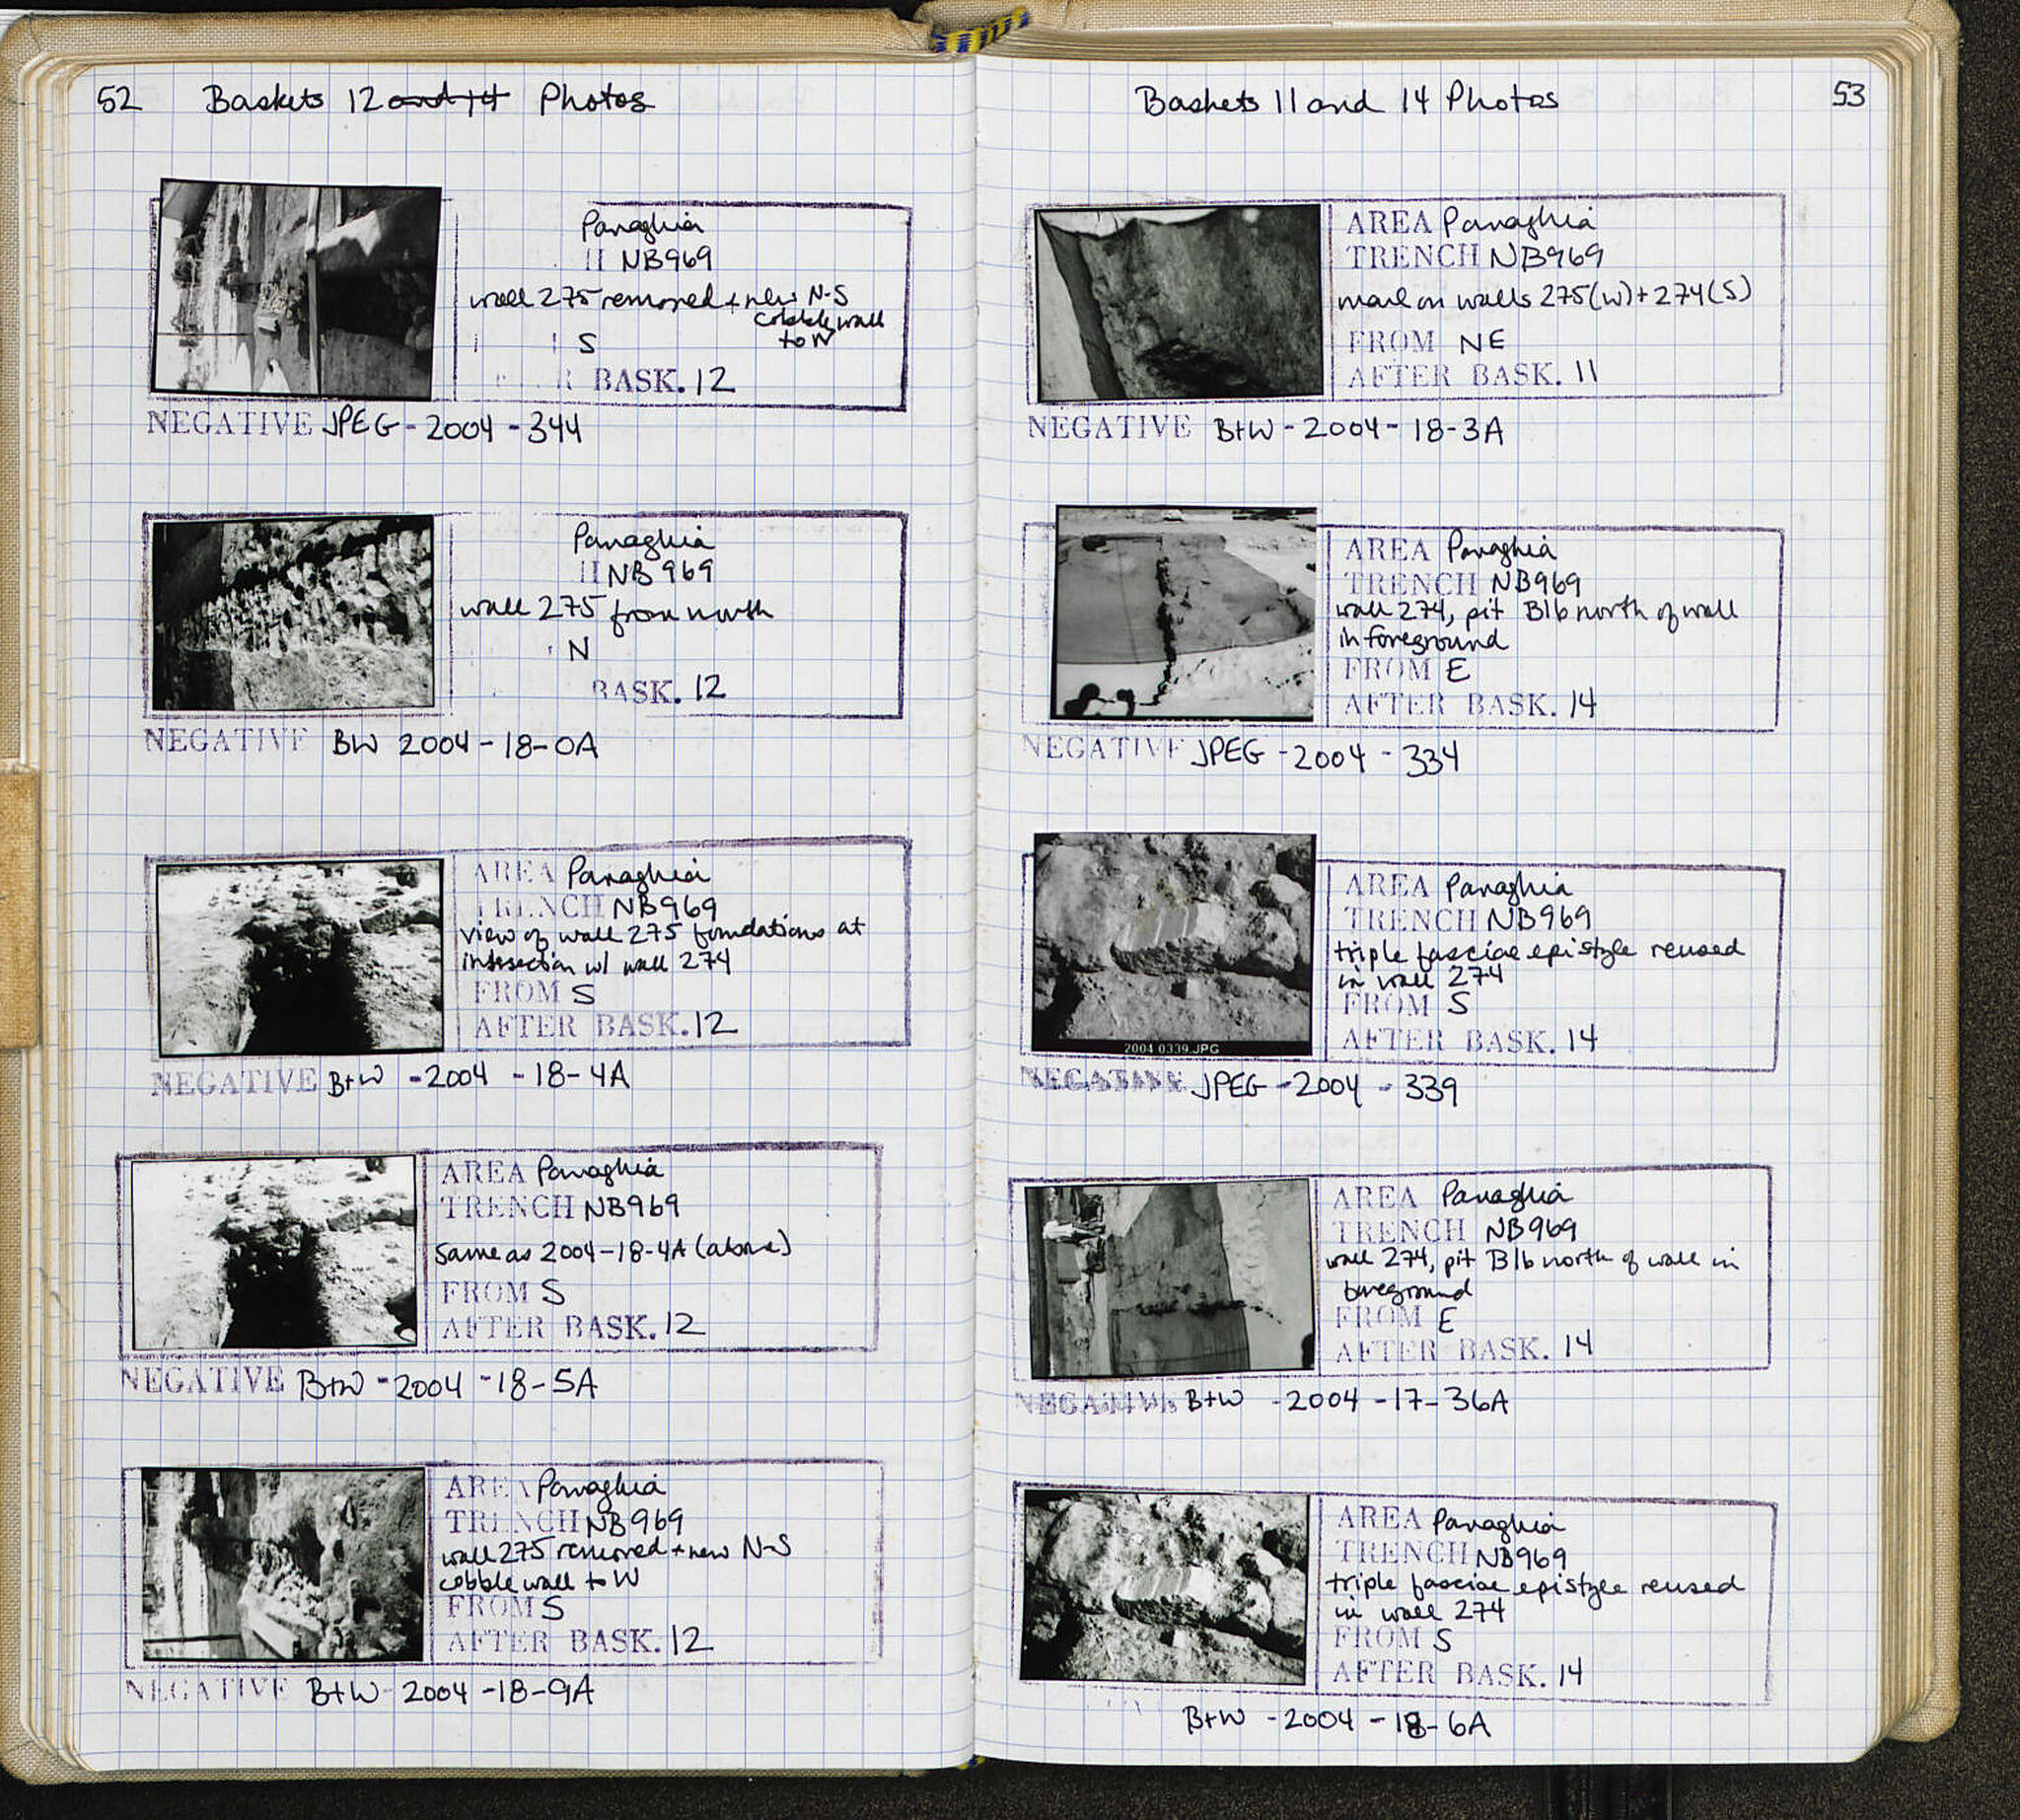 52 Baskets 12 and 14 Photos
Panaghia
II NB969
wall 275 removed + new N-S
cobble wall
to W
S
R BASK. 12
NEGATIVE JPEG - 2004 - 344
Panaghia
II NB 969
wall 275 from north
N
BASK. 12
NEGATIVE BW 2004 - 18 - 0A
AREA Panaghia
TRENCH NB969
view of wall 275 foundations at
intersection w/ wall 274
FROM S
AFTER BASK. 12
NEGATIVE B+W - 2004 - 18 - 4A
AREA Panaghia
TRENCH NB969
same as 2004-18-4A (above)
FROM S
AFTER BASK. 12
NEGATIVE B+W - 2004 - 18 - 5A
AREA Panaghia
TRENCH NB969
wall 275 removed + new N-S
cobble wall to W
FROM S
AFTER BASK. 12
NEGATIVE B+W - 2004 - 18 - 9A
Baskets 11 and 14 Photos 53
AREA Panaghia
TRENCH NB969
marl on walls 275(W) + 274(S)
FROM NE
AFTER BASK. 11
NEGATIVE B+W - 2004 - 18 - 3A
AREA Panaghia
TRENCH NB969
wall 274, pit B16 north of wall
in foreground
FROM E
AFTER BASK. 14
NEGATIVE JPEG - 2004 - 334
AREA Panaghia
TRENCH NB969
triple fasciae epistyle reused
in wall 274
FROM S
AFTER BASK. 14
2004 0339.JPG
NEGATIVE JPEG - 2004 - 339
AREA Panaghia
TRENCH NB969
wall 274, pit B16 north of wall in
foreground
FROM E
AFTER BASK. 14
NEGATIVE B+W - 2004 - 17 - 36A
AREA Panaghia
TRENCH NB969
triple fasciae epistyle reused
in wall 274
FROM S
AFTER BASK. 14
B+W - 2004 - 18 - 6A